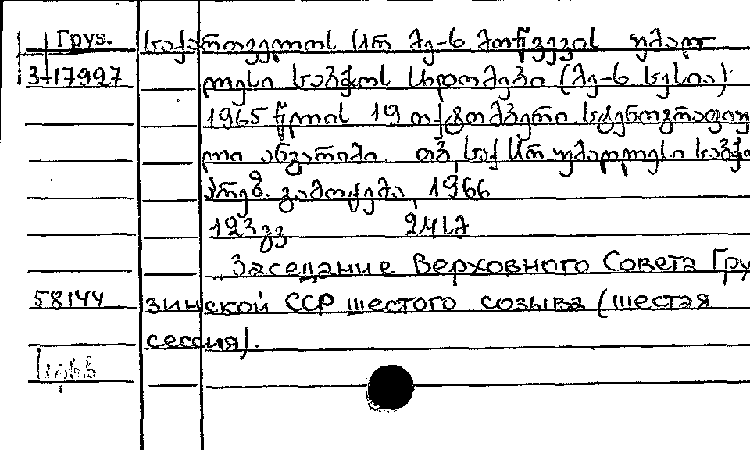 Груз. საქართველოს სსრ მე-6 მოწვევის უმაღ-
3-17997 ლესი საბჭოს სხდომები (მე-6 სესია)
1965 წლის 19 ოქტომბერი სტენოგრაფიუ
ლი ანგარიში. თბ, საქ სსრ უმაღლესი საბჭ
პრეზ. გამოცემა, 1966
193 გვ
Заседание Верховного Совета Гру
58144 зинской ССР шестого созыва (шестая
сессия).